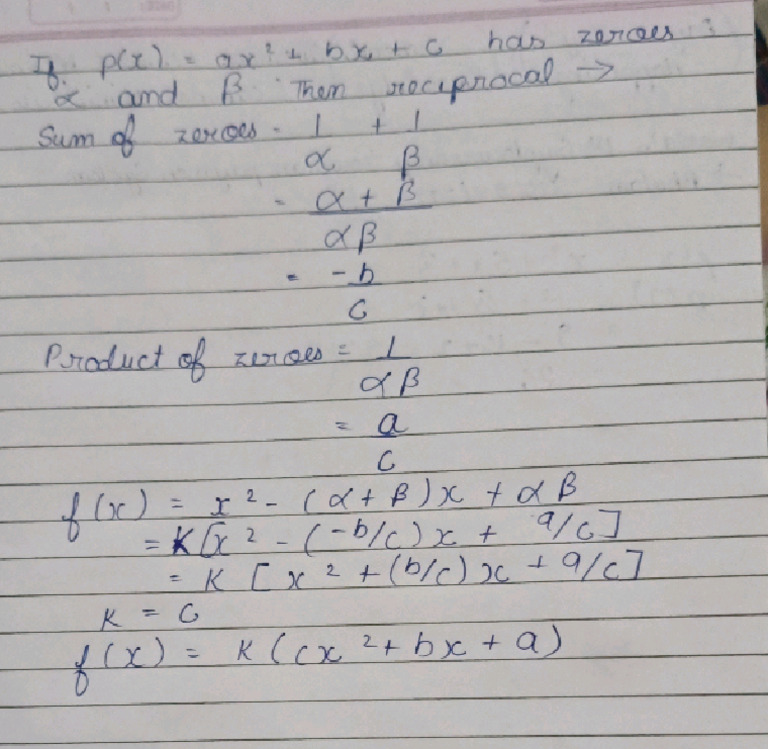 If p(x) = ax² + bx + c has zeroes
α and β Then reciprocal →
Sum of zeroes = 1/α + 1/β
= α + β / αβ
= -b/c
Product of zeroes = 1/αβ
= a/c
f(x) = x² - (α + β)x + αβ
= K[x² - (-b/c)x + a/c]
= K [x² + (b/c)x + a/c]
K = C
f(x) = K(cx² + bx + a)